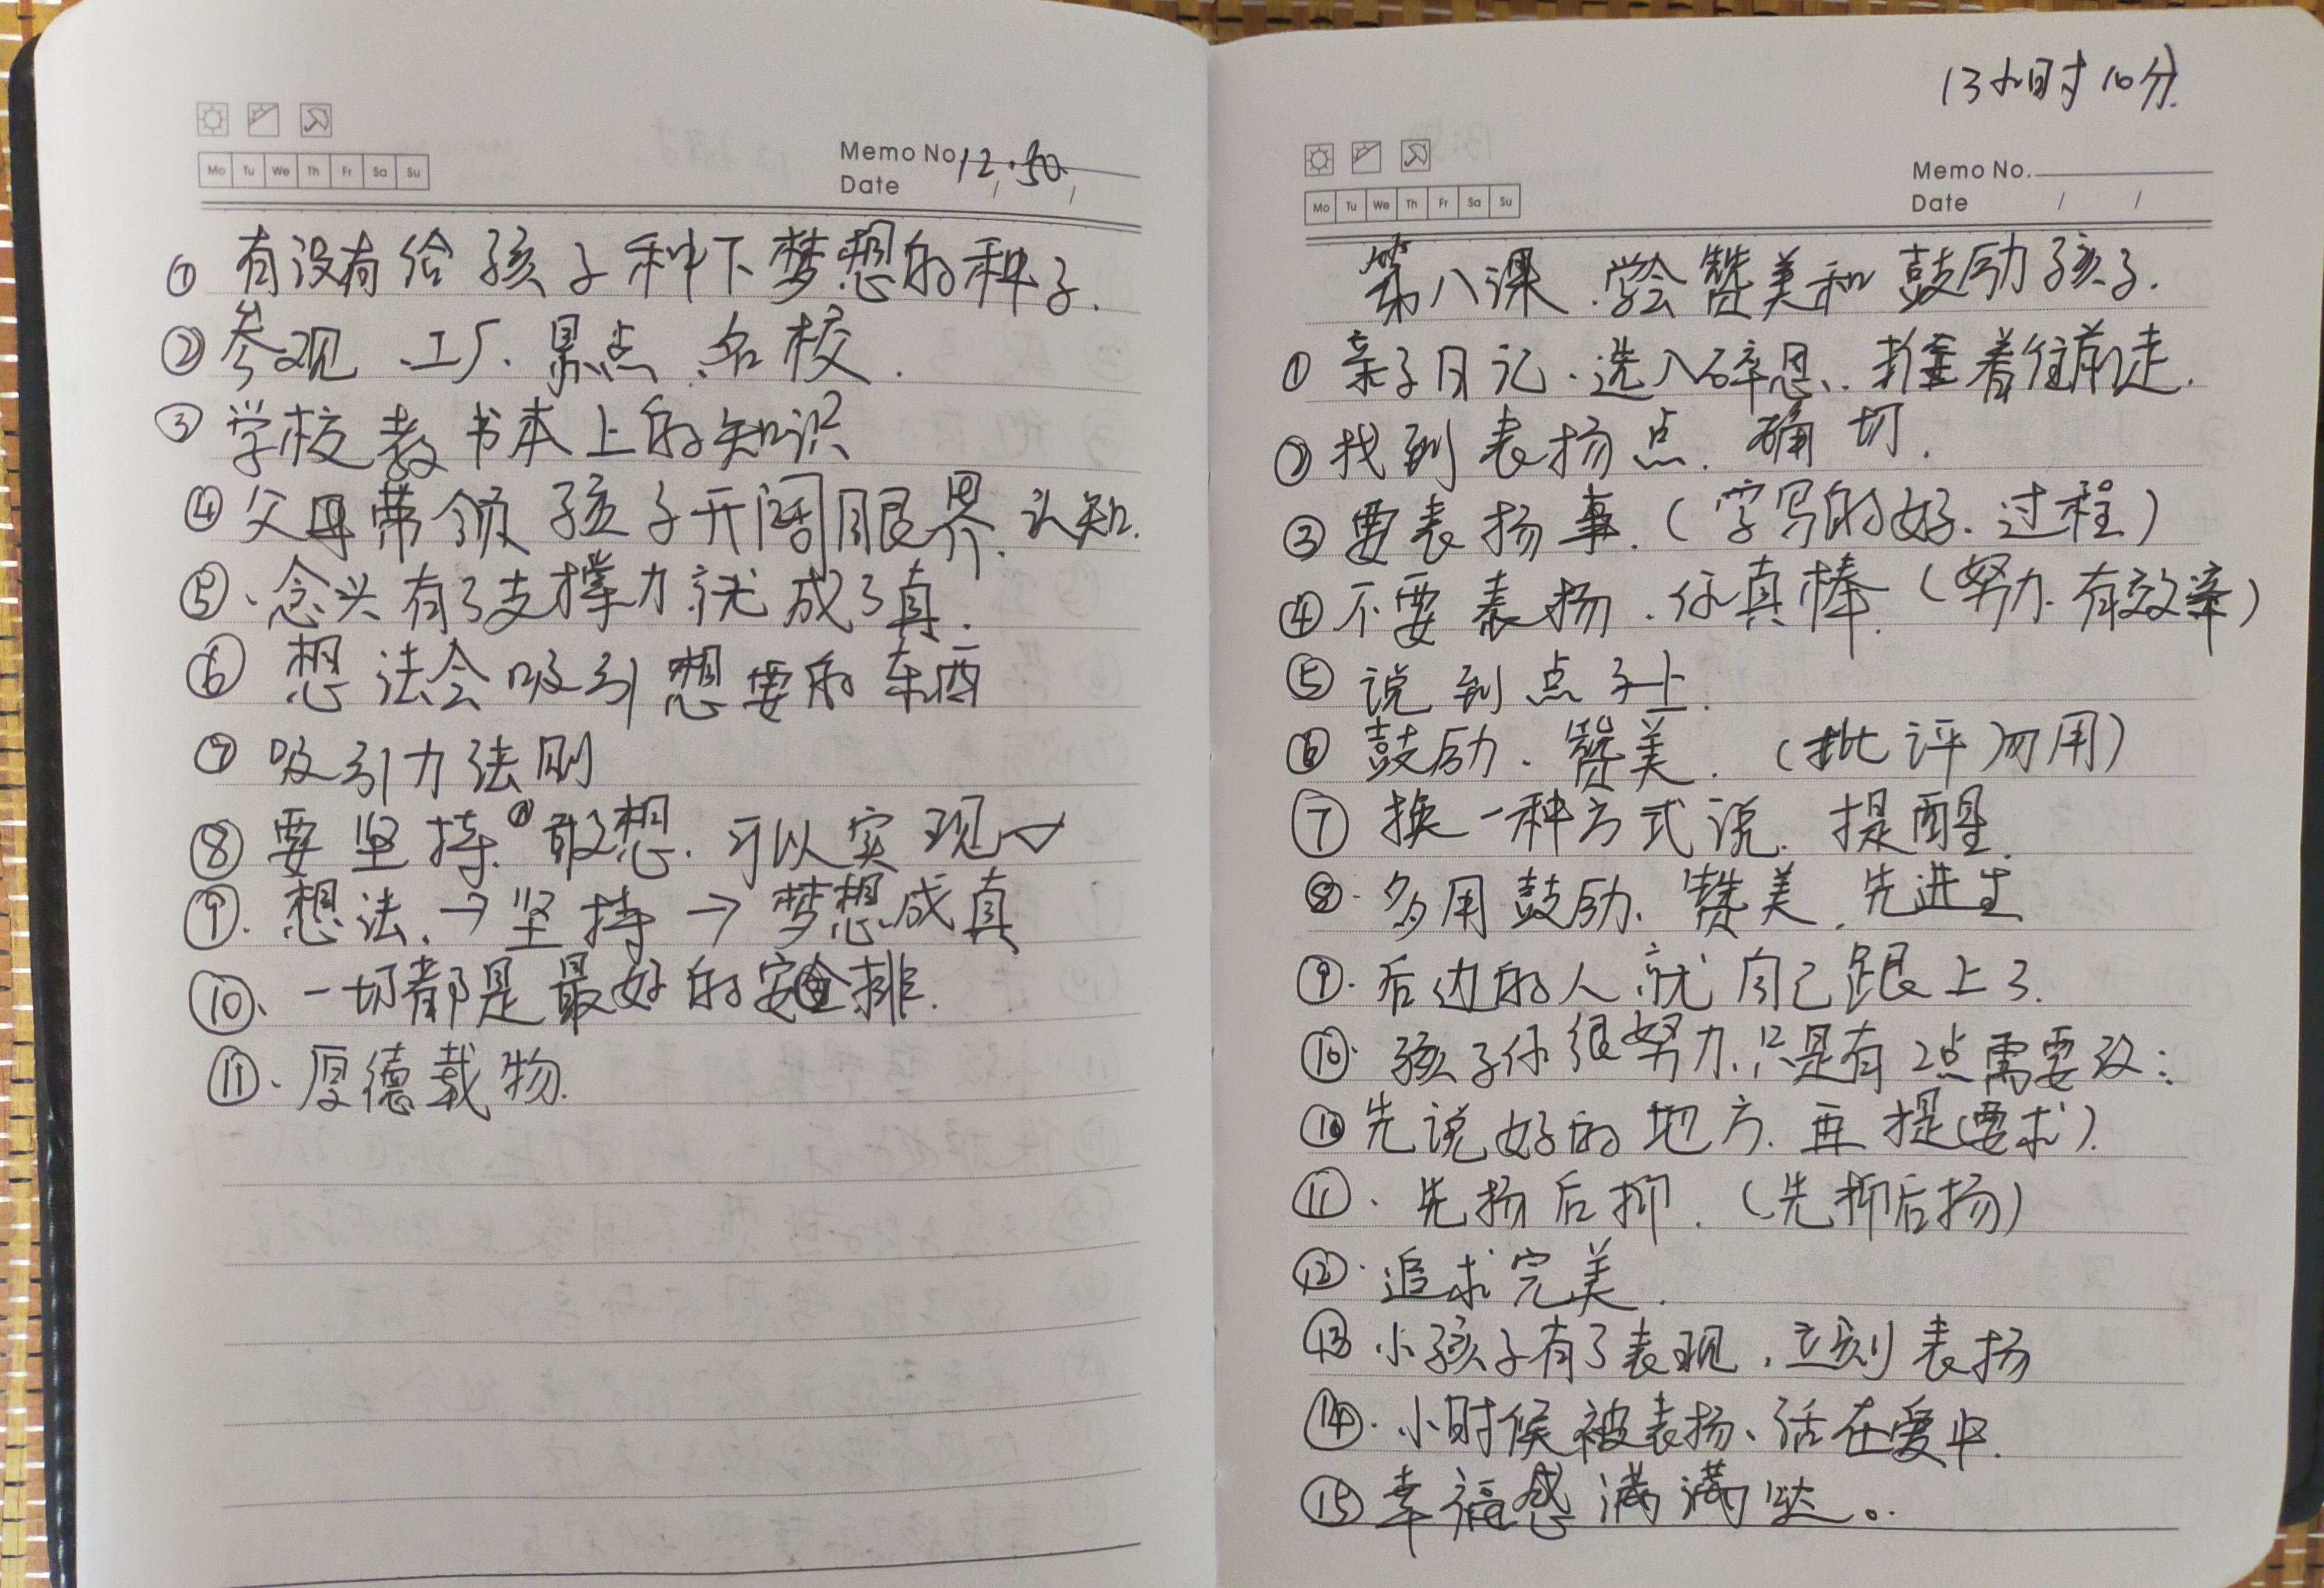 Mo Tu We Th Fr Sa Su
Memo No. 12.30
Date / /
① 有没有给孩子种下梦想的种子.
② 参观、工厂、景点、名校.
③ 学校教书本上的知识
④ 父母带领孩子开阔眼界、认知.
⑤、念头有了支撑力就成了真.
⑥ 想法会吸引想要的东西
⑦ 吸引力法则
⑧ 要坚持、敢想、可以实现✓
⑨. 想法、→坚持→梦想成真
⑩、一切都是最好的安排.
⑪、厚德载物.
13小时10分
Mo Tu We Th Fr Sa Su
Memo No.
Date / /
第八课.学会赞美和鼓励孩子.
① 亲子日记.选入碎思、推着往前走.
② 找到表扬点.确切.
③ 要表扬事.(字写的好.过程)
④ 不要表扬.你真棒.(努力.有效率)
⑤ 说到点子上.
⑥ 鼓励、赞美.(批评勿用)
⑦ 换一种方式说.提醒.
⑧. 多用鼓励、赞美.先进生
⑨. 后边的人就自己跟上了.
⑩. 孩子你很努力.只是有2点需要改:
⑩ 先说好的地方.再提(要求).
⑪. 先扬后抑.(先抑后扬)
⑫. 追求完美.
⑬ 小孩子有了表现.立刻表扬
⑭. 小时候被表扬、活在爱中.
⑮ 幸福感满满哒。